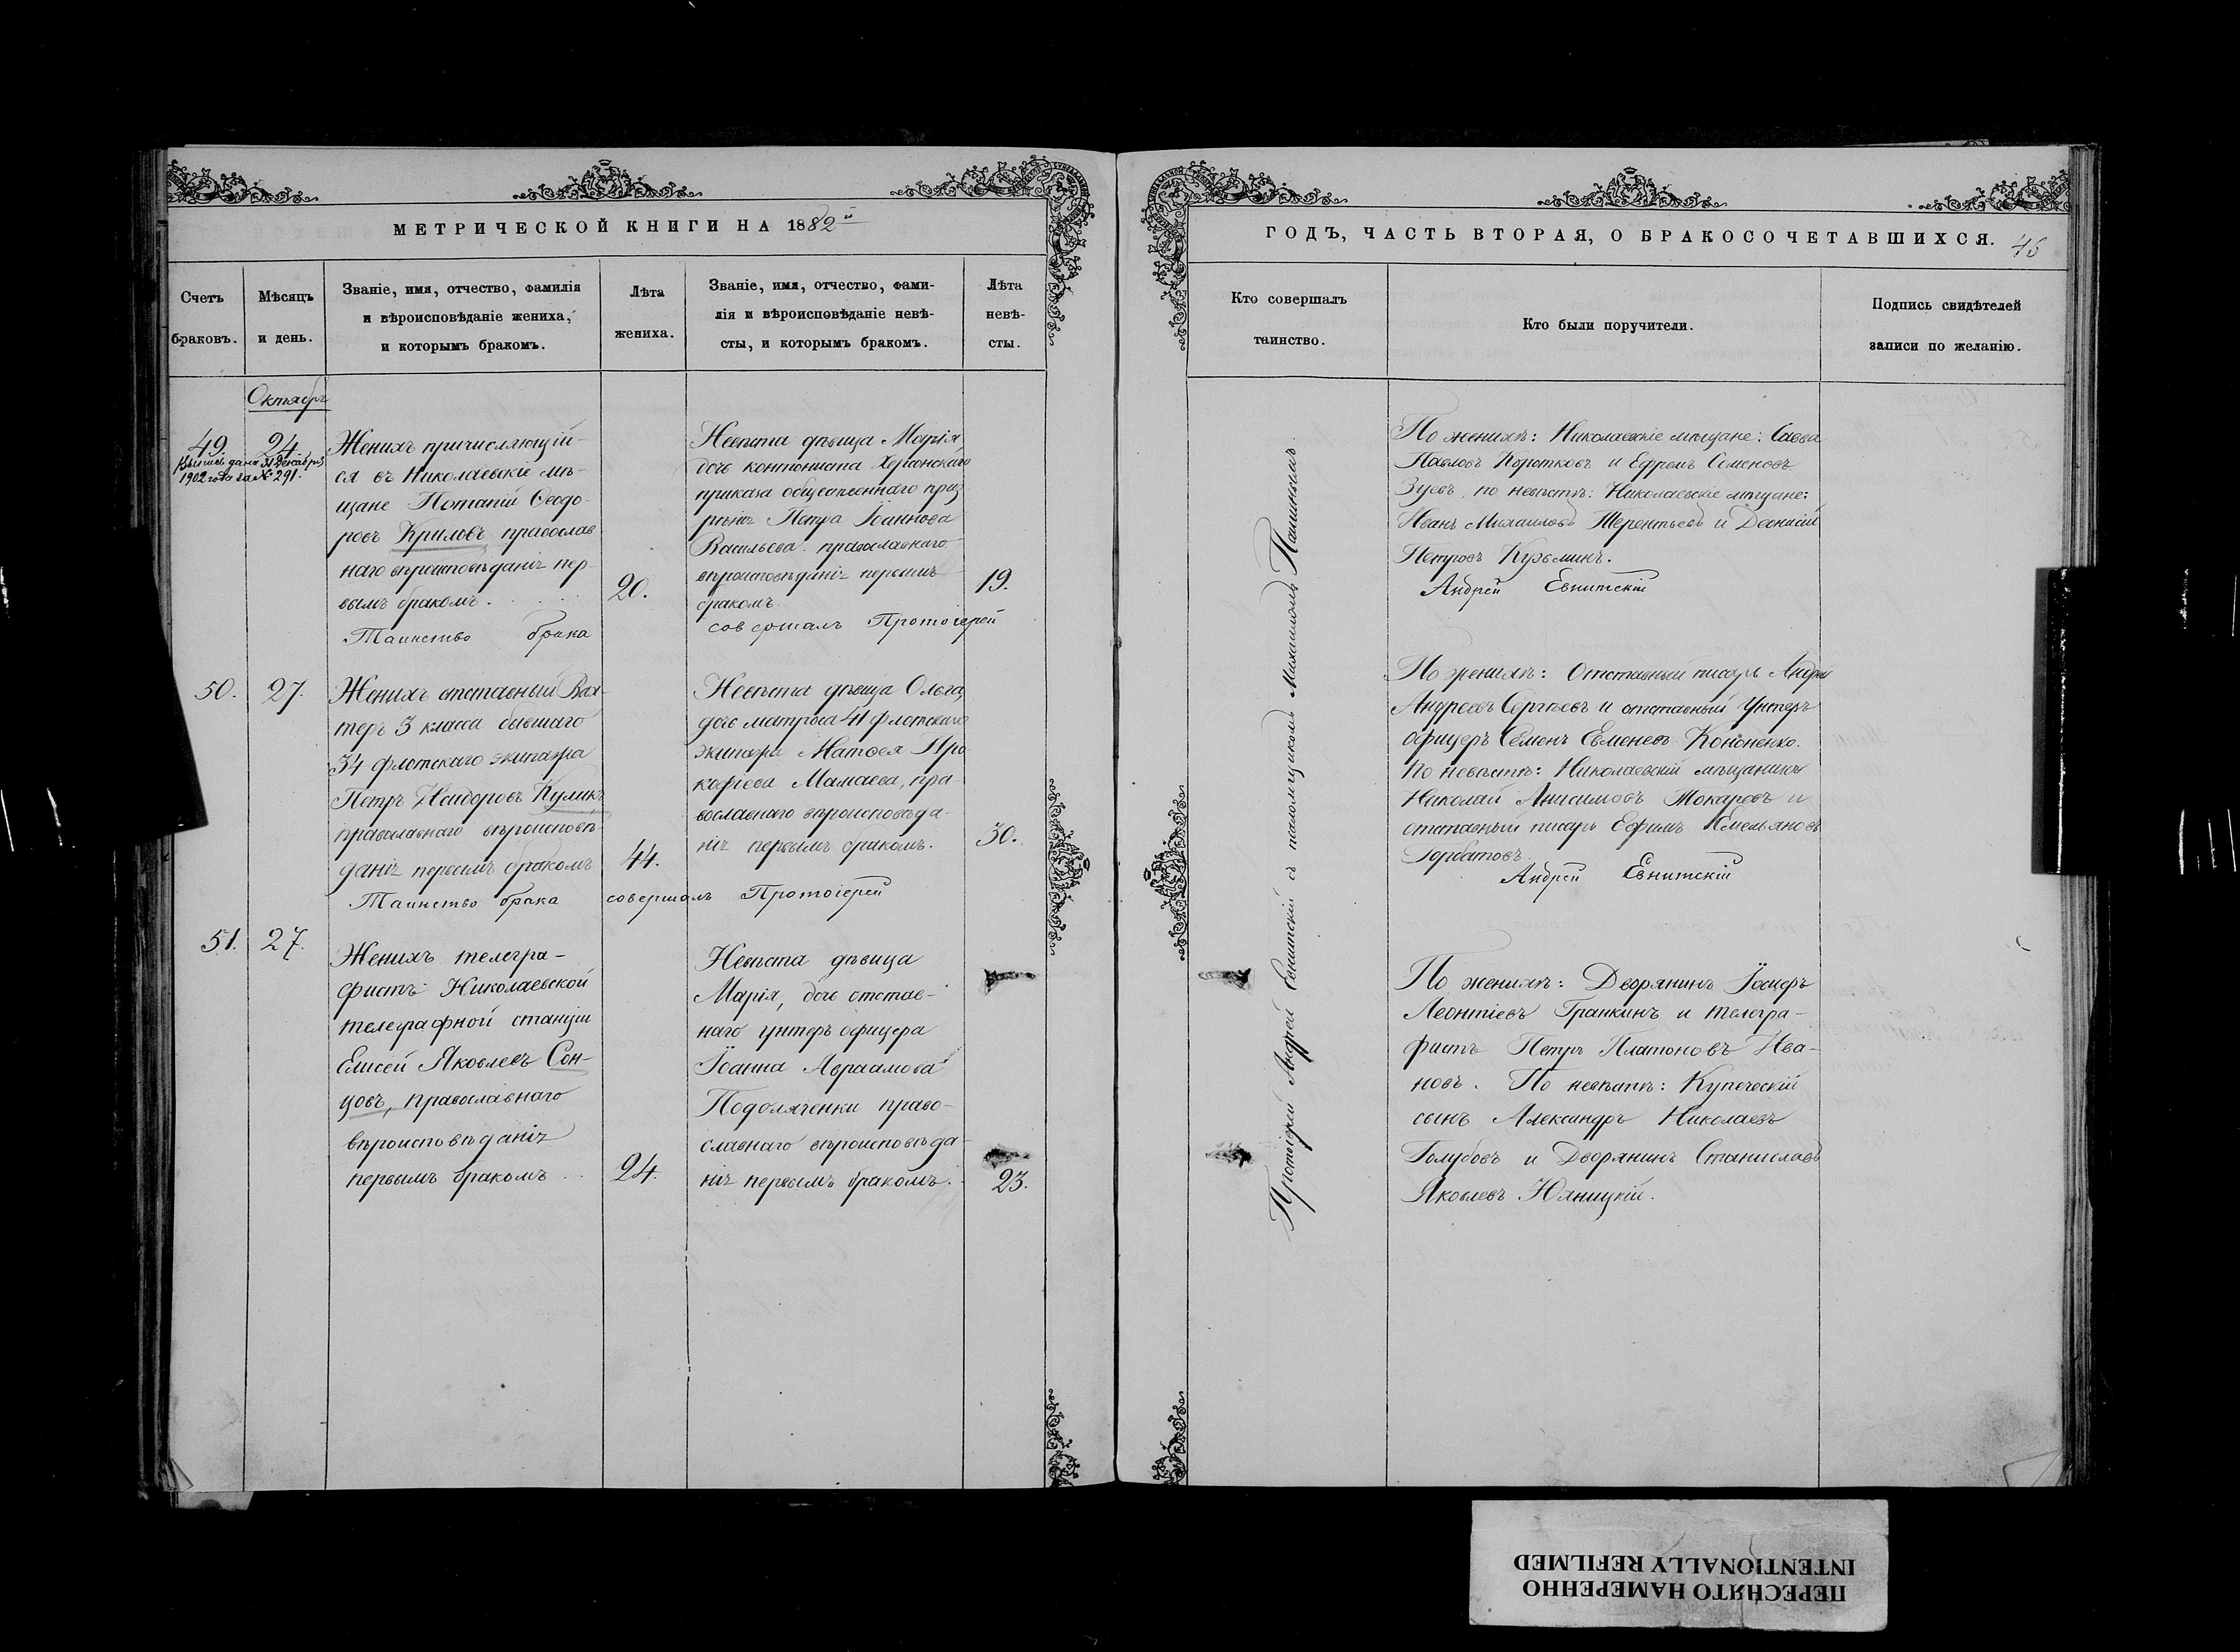 МЕТРИЧЕСКОЙ КНИГИ НА 1882й
Счетъ браковъ.
Мѣсяцъ и день.
Званіе, имя, отчество, фамилія
и вѣроисповѣданіе жениха,
и которымъ бракомъ.
Лѣта жениха.
Званіе, имя, отчество, фами-
лія и вѣроисповѣданіе невѣ-
сты, и которымъ бракомъ.
Лѣта невѣ-
сты.
Октябрь
49.
24
Выпись дана 31 декабря
1902 года за № 291.
Женихъ причисляющій-
ся въ Николаевскіе мѣ-
щане Потапій Ѳеодо-
ровъ Крыловъ, православ
наго вѣроисповѣданія пер-
вымъ бракомъ.
20.
Невѣста дѣвица Марія
дочь контониста Херсонскаго
приказа общественнаго приз
рѣнія Петра Іоаннова
Васильева православнаго
вѣроисповѣданія первымъ
бракомъ
19.
Таинство брака совершалъ Протоіерей
50.
27.
Женихъ отставный Вах-
теръ 3 класса бывшаго
34 флотскаго экипажа
Петръ Исидоровъ Куликъ
православнаго вѣроисповѣ-
данія первымъ бракомъ
44.
Невѣста дѣвица Ольга,
дочь матроса 41 флотскаго
экипажа Матвея Про
кофіева Мамаева, пра-
вославнаго вѣроисповѣда-
нія первымъ бракомъ.
30.
Таинство брака совершалъ Протоіерей
51.
27.
Женихъ телегра-
фистъ Николаевской
телеграфной станціи
Елисей Яковлевъ Сон-
цовъ, православнаго
вѣроисповѣданія
первымъ бракомъ
24.
Невѣста дѣвица
Марія, дочь отстав-
наго унтеръ офицера
Іоанна Авраамова
Подоляченки право-
славнаго вѣроисповѣда-
нія первымъ бракомъ.
23.
ГОДЪ, ЧАСТЬ ВТОРАЯ, О БРАКОСОЧЕТАВШИХСЯ.
Кто совершалъ
таинство.
Кто были поручители.
Подпись свидѣтелей
записи по желанію.
Протоіерей Андрей Евнитскій съ псаломщикомъ Михаиломъ
По женихѣ: Николаевскіе мѣщане: Савва
Павловъ Коротковъ и Ефремъ Семеновъ
Зуевъ, по невѣстѣ: Николаевскіе мѣщане:
Иванъ Михаиловъ Терентьевъ и Діонисій
Петровъ Кузьминъ.
Андрей Евнитскій
По женихѣ: Отставный писарь Андрей
Андреевъ Сергѣевъ и отставный Унтеръ
офицеръ Семенъ Евменовъ Кононенко.
По невѣстѣ: Николаевскій мѣщанинъ
Николай Анисимовъ Токаревъ и
отставный писарь Ефимъ Емельяновъ
Горбатовъ.
Андрей Евнитскій
По женихѣ: Дворянинъ Іосифъ
Леонтіевъ Гранкинъ и телегра-
фистъ Петръ Платоновъ Ива-
новъ. По невѣстѣ: Купеческій
сынъ Александръ Николаевъ
Голубовъ и Дворянинъ Станиславъ
Яковлевъ Юхницкій.
ПЕРЕСНЯТО НАМЕРЕННО
INTENTIONALLY REFILMED